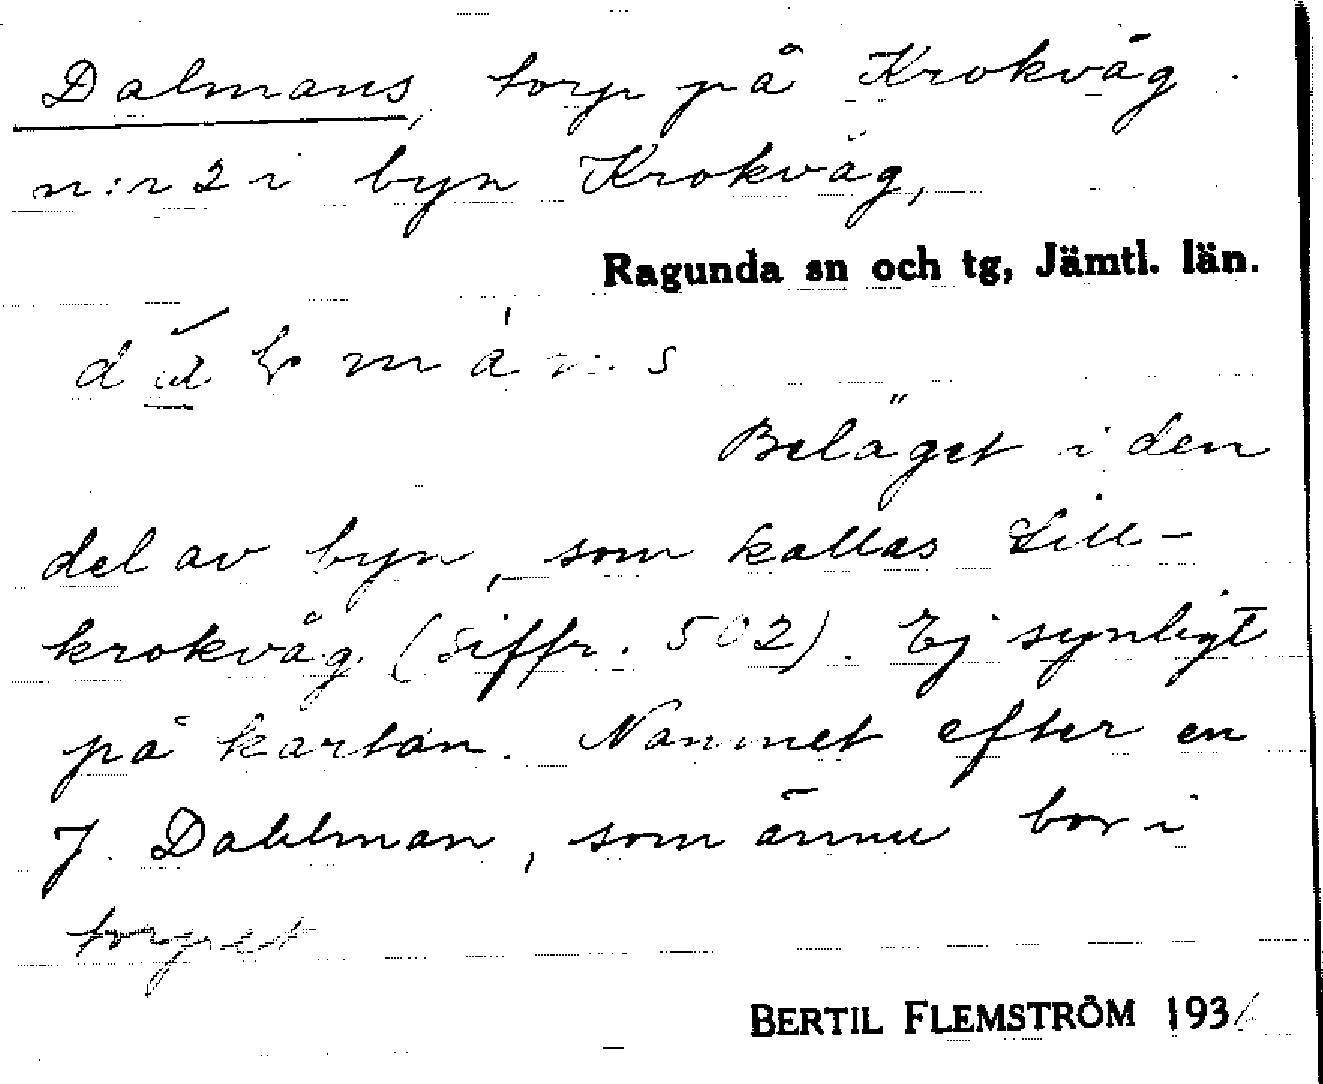 Dalmans, torp på Krokvåg
n:r 2 i byn Krokvåg,
Ragunda sn och tg, Jämtl. län.
Beläget i den
del av byn, som kallas Lill-
krokvåg (siffr. 502). Ej synligt
på kartan. Namnet efter en
J. Dahlman, som ännu bor i
torpet
BERTIL FLEMSTRÖM 1936